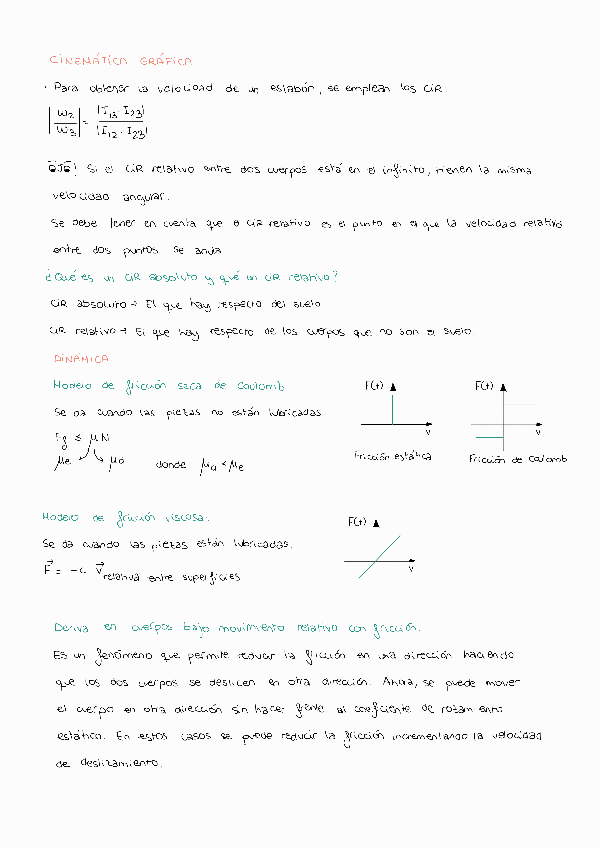 CINEMÁTICA GRÁFICA
· Para obtener la velocidad de un eslabón, se emplean los CIR
|ω2/ω3| = |I13 · I23| / |I12 · I23|
¡OJO! Si el CIR relativo entre dos cuerpos está en el infinito, tienen la misma
velocidad angular.
Se debe tener en cuenta que el CIR relativo es el punto en el que la velocidad relativa
entre dos puntos se anula
¿Qué es un CIR absoluto y qué un CIR relativo?
CIR absoluto → El que hay respecto del suelo
CIR relativo → El que hay respecto de los cuerpos que no son el suelo.
DINÁMICA
Modelo de fricción seca de Coulomb
Se da cuando las piezas no están lubricadas
Fg ≤ μ N
μe μd donde μd < μe
F(t)
V
Fricción estática
F(t)
V
Fricción de Coulomb
Modelo de fricción viscosa.
Se da cuando las piezas están lubricadas.
F = -c · V relativa entre superficies
F(t)
V
Deriva en cuerpos bajo movimiento relativo con fricción.
Es un fenómeno que permite reducir la fricción en una dirección haciendo
que los dos cuerpos se deslicen en otra dirección. Ahora, se puede mover
el cuerpo en otra dirección sin hacer frente al coeficiente de rozamiento
estático. En estos casos se puede reducir la fricción incrementando la velocidad
de deslizamiento.